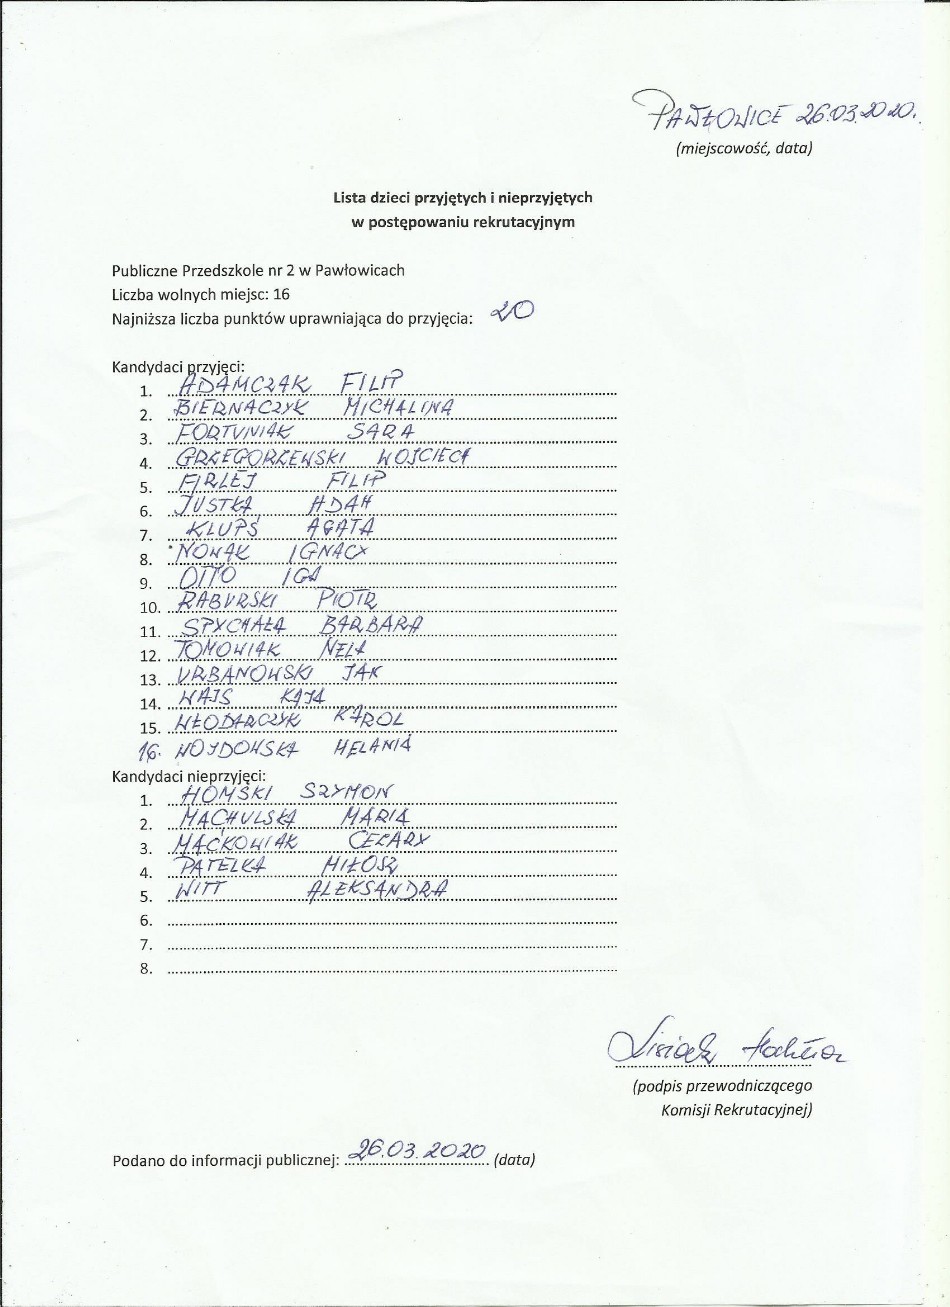 PAWŁOWICE 26.03.2020.
(miejscowość, data)
Lista dzieci przyjętych i nieprzyjętych
w postępowaniu rekrutacyjnym
Publiczne Przedszkole nr 2 w Pawłowicach
Liczba wolnych miejsc: 16
Najniższa liczba punktów uprawniająca do przyjęcia: 20
Kandydaci przyjęci:
1. ADAMCZAK FILIP
2. BIERNACZYK MICHALINA
3. FORTUNIAK SARA
4. GRZEGORZEWSKI WOJCIECH
5. FIRLEJ FILIP
6. JUSTKA ADAM
7. KLUPŚ AGATA
8. NOWAK IGNACY
9. OTTO IGA
10. RABURSKI PIOTR
11. SPYCHAŁA BARBARA
12. TOMOWIAK NELA
13. URBANOWSKI JAK
14. WAJS KAJA
15. WŁODARCZYK KAROL
16. WOJDOWSKA HELANIA
Kandydaci nieprzyjęci:
1. HOMSKI SZYMON
2. MACHULSKA MARIA
3. MAĆKOWIAK CEZARY
4. PATELKA MIŁOSZ
5. WITT ALEKSANDRA
6.
7.
8.
(podpis przewodniczącego
Komisji Rekrutacyjnej)
Podano do informacji publicznej: 26.03.2020 (data)